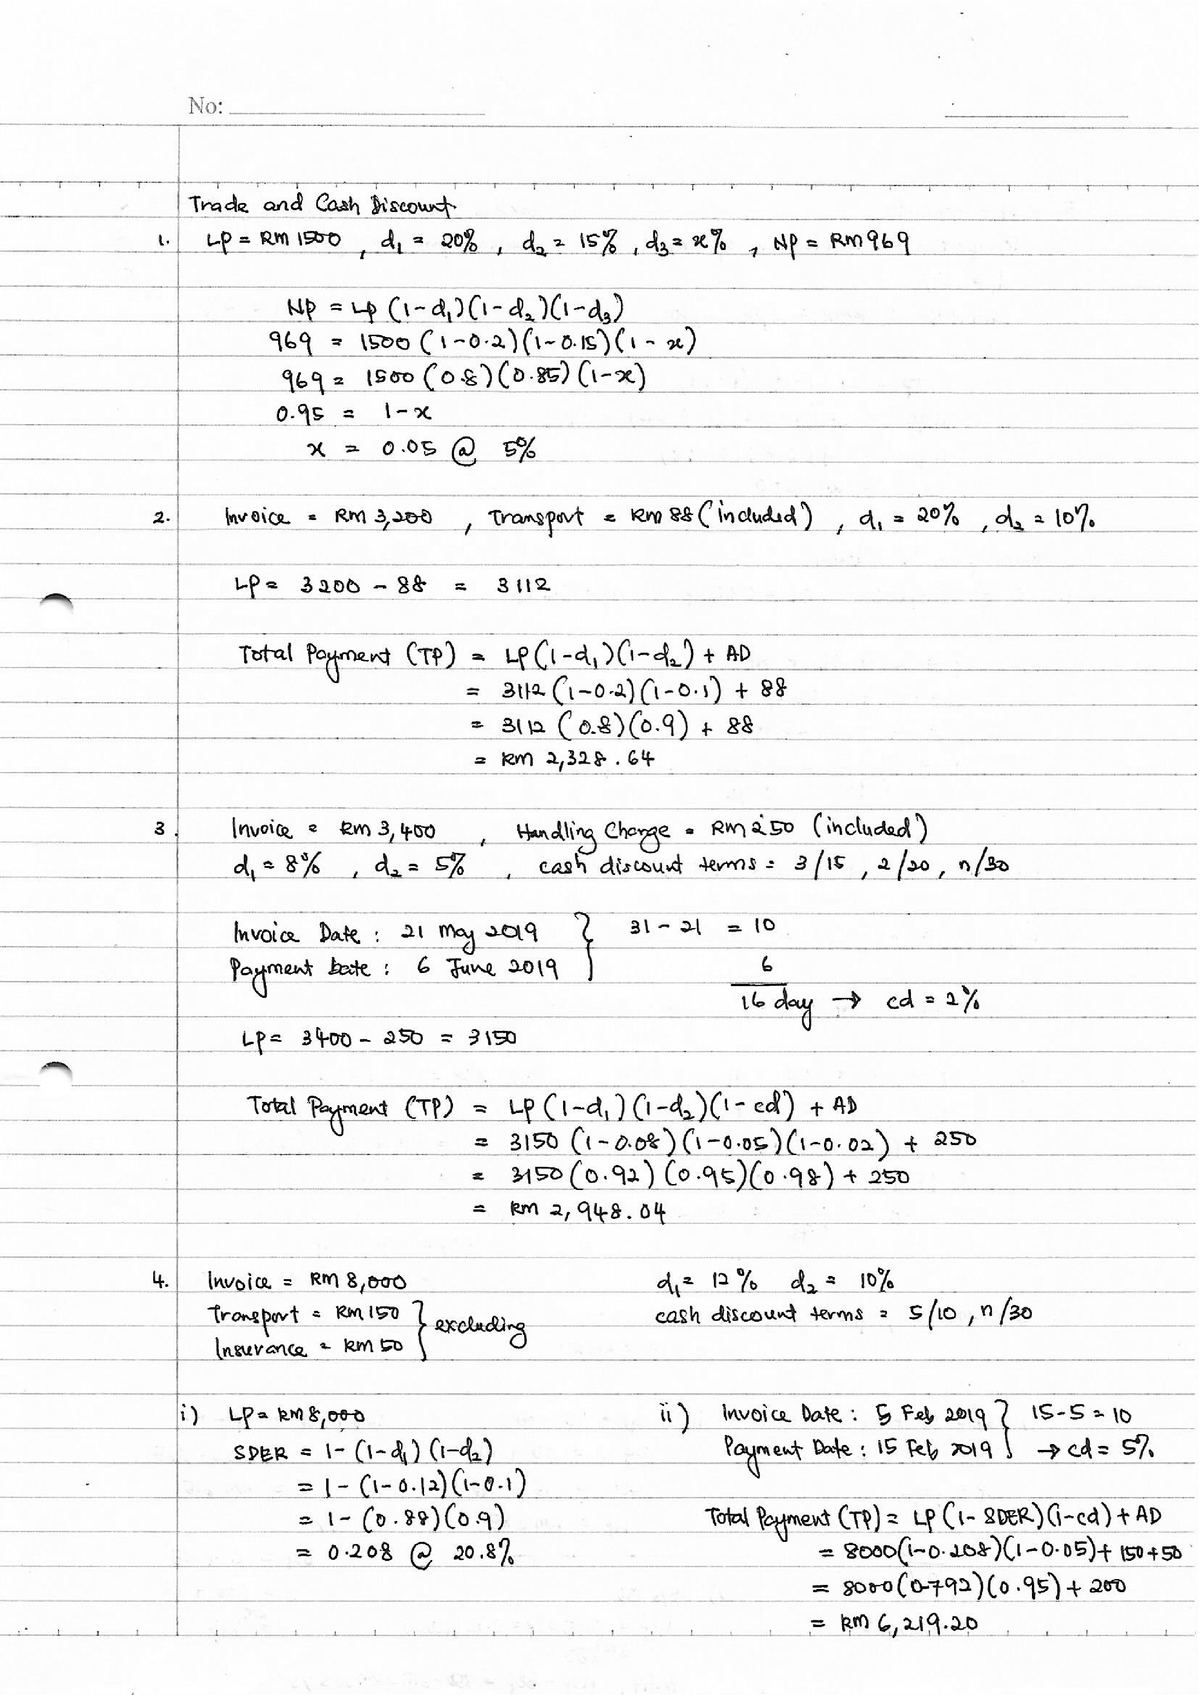 No:
Trade and Cash Discount
1. LP = RM 1500 , d₁ = 20% , d₂ = 15% , d₃ = x% , NP = RM 969
NP = LP (1-d₁)(1-d₂)(1-d₃)
969 = 1500 (1-0.2)(1-0.15)(1-x)
969 = 1500 (0.8)(0.85)(1-x)
0.95 = 1-x
x = 0.05 @ 5%
2. Invoice = RM 3,200 , Transport = RM 88 (included) , d₁ = 20% , d₂ = 10%
LP = 3200 - 88 = 3112
Total Payment (TP) = LP (1-d₁)(1-d₂) + AD
= 3112 (1-0.2)(1-0.1) + 88
= 3112 (0.8)(0.9) + 88
= RM 2,328.64
3. Invoice = RM 3,400 , Handling Charge = RM 250 (included)
d₁ = 8% , d₂ = 5% , cash discount terms = 3/15 , 2/20 , n/30
Invoice Date : 21 May 2019 } 31 - 21 = 10
Payment Date : 6 June 2019 6
16 day → cd = 2%
LP = 3400 - 250 = 3150
Total Payment (TP) = LP (1-d₁)(1-d₂)(1-cd) + AD
= 3150 (1-0.08)(1-0.05)(1-0.02) + 250
= 3150 (0.92)(0.95)(0.98) + 250
= RM 2,948.04
4. Invoice = RM 8,000 d₁ = 12% d₂ = 10%
Transport = RM 150 } excluding cash discount terms = 5/10 , n/30
Insurance = RM 50
i) LP = RM 8,000
SDER = 1 - (1-d₁)(1-d₂)
= 1 - (1-0.12)(1-0.1)
= 1 - (0.88)(0.9)
= 0.208 @ 20.8%
ii) Invoice Date : 5 Feb 2019 } 15-5 = 10
Payment Date : 15 Feb 2019 → cd = 5%
Total Payment (TP) = LP (1-SDER)(1-cd) + AD
= 8000(1-0.208)(1-0.05) + 150+50
= 8000(0.792)(0.95) + 200
= RM 6,219.20